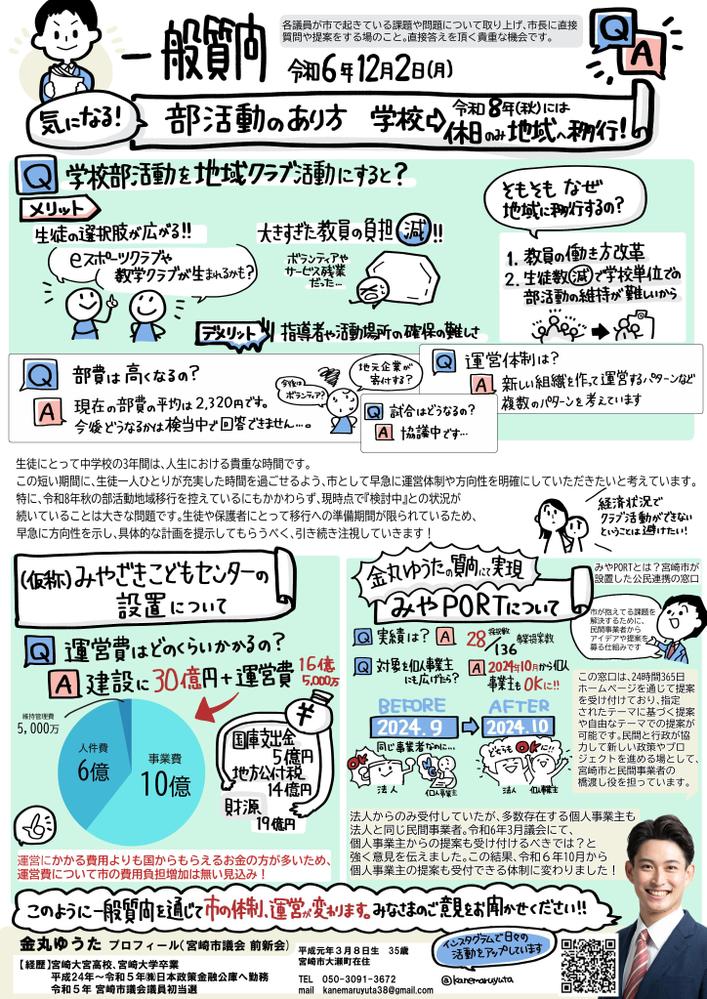 一般質問
各議員が市で起きている課題や問題について取り上げ、市長に直接
質問や提案をする場のこと。直接答えを頂く貴重な機会です。
令和6年12月2日(月)
Q
A
気になる!
部活動のあり方 学校⇨
令和8年(秋)には
休日のみ地域へ移行!
Q 学校部活動を地域クラブ活動にすると?
メリット
生徒の選択肢が広がる!!
eスポーツクラブや
数学クラブが生まれるかも?
大きすぎた教員の負担減!!
ボランティアや
サービス残業
だった…
デメリット 指導者や活動場所の確保の難しさ
そもそもなぜ
地域に移行するの?
1. 教員の働き方改革
2. 生徒数減で学校単位での
部活動の維持が難しいから
Q 部費は高くなるの?
A 現在の部費の平均は2,320円です。
今後どうなるかは検討中で回答できません…。
今後は
ボランティア?
地元企業が
寄付する?
Q 運営体制は?
A 新しい組織を作って運営するパターンなど
複数のパターンを考えています
Q 試合はどうなるの?
A 協議中です…
生徒にとって中学校の3年間は、人生における貴重な時間です。
この短い期間に、生徒一人ひとりが充実した時間を過ごせるよう、市として早急に運営体制や方向性を明確にしていただきたいと考えています。
特に、令和8年秋の部活動地域移行を控えているにもかかわらず、現時点で『検討中』との状況が
続いていることは大きな問題です。生徒や保護者にとって移行への準備期間が限られているため、
早急に方向性を示し、具体的な計画を提示してもらうべく、引き続き注視していきます!
経済状況で
クラブ活動ができない
ということは避けたい!
(仮称)みやざきこどもセンターの
設置について
Q 運営費はどのくらいかかるの?
A 建設に30億円+運営費16億
5,000万
維持管理費
5,000万
人件費
6億
事業費
10億
¥
国庫支出金
5億円
地方公付税
14億円
財源
19億円
運営にかかる費用よりも国からもらえるお金の方が多いため、
運営費について市の費用負担増加は無い見込み!
金丸ゆうたの質問にて実現
みやPORTについて
みやPORTとは?宮崎市が
設置した公民連携の窓口
市が抱えてる課題を
解決するために、
民間事業者から
アイデアや提案を
募る仕組みです
Q 実績は?
A 28/136
Q 対象を個人事業主
にも広げたら?
A 2024年10月から個人
事業主もOKに!!
BEFORE
2024.9
AFTER
2024.10
同じ事業者なのに…
どちらもOKに!!
OK
法人
個人事業主
法人
個人事業主
この窓口は、24時間365日
ホームページを通じて提案
を受け付けており、指定
されたテーマに基づく提案
や自由なテーマでの提案が
可能です。民間と行政が協
力して新しい政策やプロ
ジェクトを進める場として、
宮崎市と民間事業者の
橋渡し役を担っています。
法人からのみ受付していたが、多数存在する個人事業主も
法人と同じ民間事業者。令和6年3月議会にて、
個人事業主からの提案も受け付けるべきでは?と
強く意見を伝えました。この結果、令和6年10月から
個人事業主の提案も受付できる体制に変わりました!
このように一般質問を通じて市の体制、運営が変わります。みなさまのご意見をお聞かせください!!
金丸ゆうた プロフィール(宮崎市議会 前新会)
【経歴】宮崎大宮高校、宮崎大学卒業
平成24年〜令和5年㈱日本政策金融公庫へ勤務
令和5年 宮崎市議会議員初当選
平成元年3月8日生 35歳
宮崎市大瀬町在住
TEL 050-3091-3672
mail kanemaruyuta38@gmail.com
インスタグラムで日々の
活動をアップしています
@kanemaruyuta